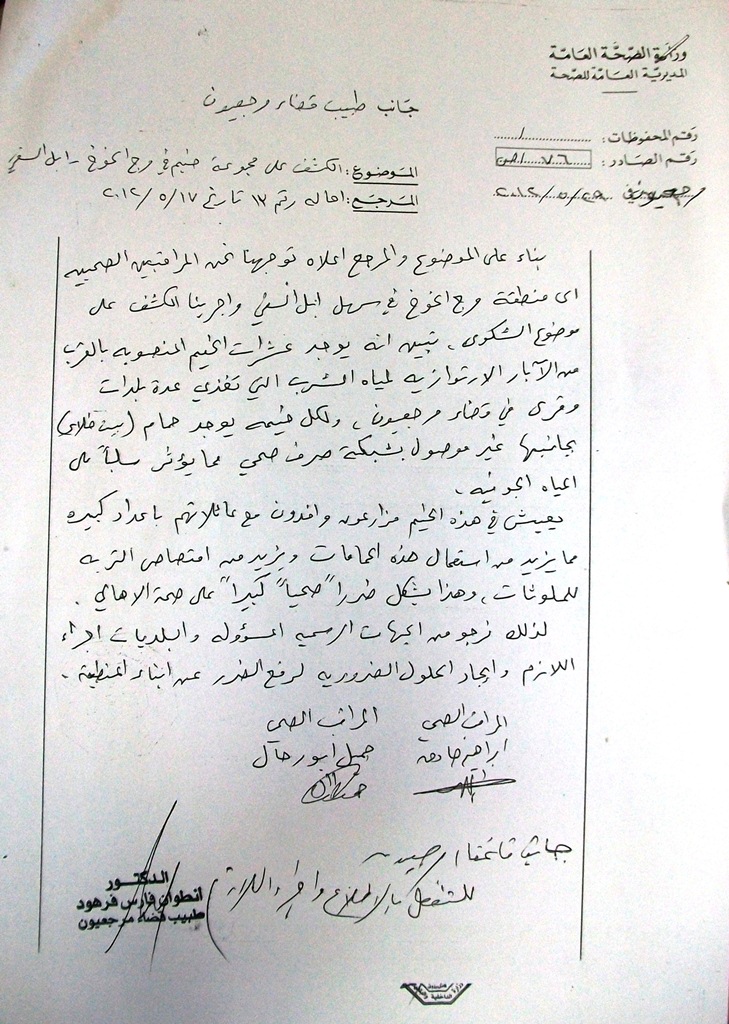 وزارة الصحة العامة
المديرية العامة للصحة
جانب طبيب قضاء مرجعيون
رقم المحفوظات: ١
رقم الصادر: ٧٦/ص
الموضوع: الكشف على مجموعة خيم في مرج الخوخ - ابل السقي
المرجع: احاله رقم ١٣ تاريخ ٢٠١٢/٥/١٧
بناء على الموضوع والمرجع اعلاه توجهنا نحن المراقبين الصحيين
الى منطقة مرج الخوخ في سهل ابل السقي واجرينا الكشف على
موضوع الشكوى، تبين انه يوجد عشرات الخيم المنصوبه بالقرب
من الآبار الارتوازيه لمياه الشرب التي تغذي عدة بلدات
وقرى في قضاء مرجعيون، ولكل خيمه يوجد حمام (بيت خلاء)
بجانبها غير موصول بشبكة صرف صحي مما يؤثر سلباً على
المياه الجوفيه.
يعيش في هذه الخيم مزارعون وافدون مع عائلاتهم باعداد كبيره
مما يزيد من استعمال هذه الحمامات ويزيد من امتصاص التربه
للملوثات، وهذا يشكل ضرراً صحياً كبيراً على صحة الاهالي.
لذلك نرجو من الجهات الرسميه المسؤوله والبلديات اجراء
اللازم وايجاد الحلول الضروريه لرفع الضرر عن ابناء المنطقة.
المراقب الصحي المراقب الصحي
ابراهيم جميل ابو رحال
جانب قائمقام
للتفضل بالاطلاع واجراء اللازم
الدكتور
انطوان فارس فرهود
طبيب قضاء مرجعيون